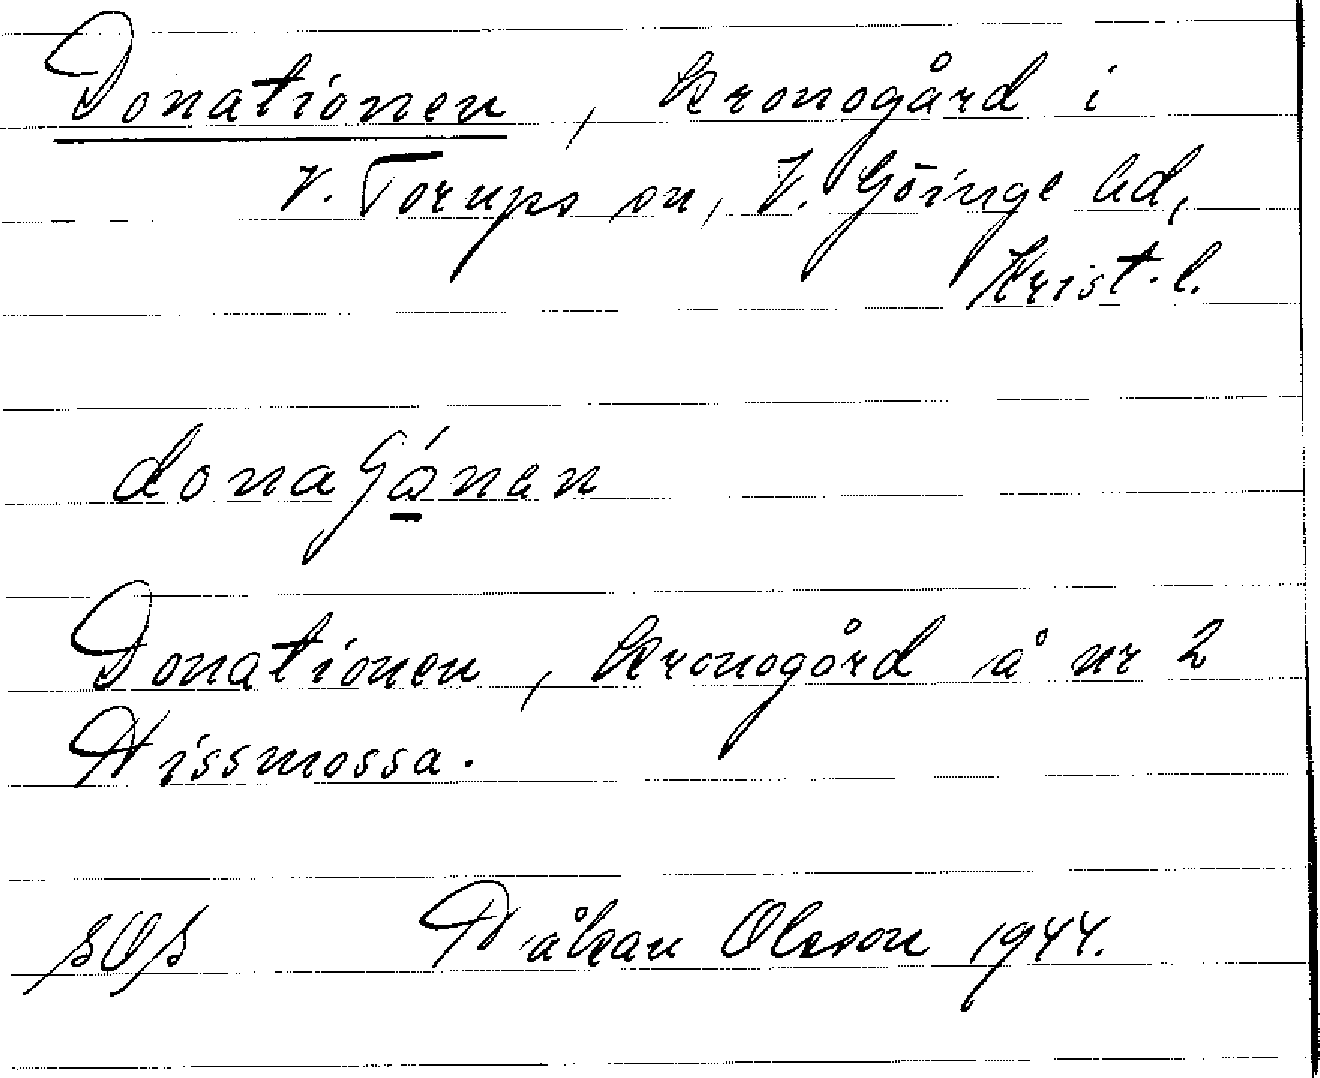 Donationen, kronogård i
V. Torups sn, V. Göinge hd,
Krist. l.
Donationen, kronogård å nr 2
Hissmossa.
SOS Håkan Olsson 1944.